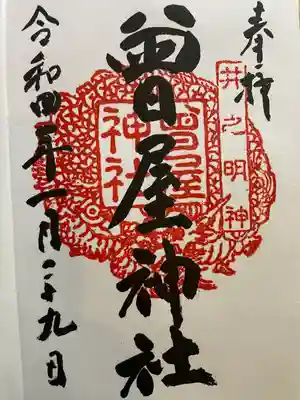 奉拝
井之明神
曽屋神社
曽屋
神社
令和四年一月二十九日